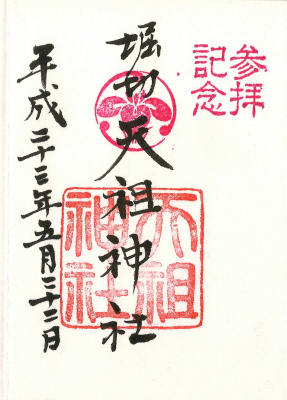 参拝
記念
堀切天祖神社
天祖
神社
平成二十三年五月二十二日